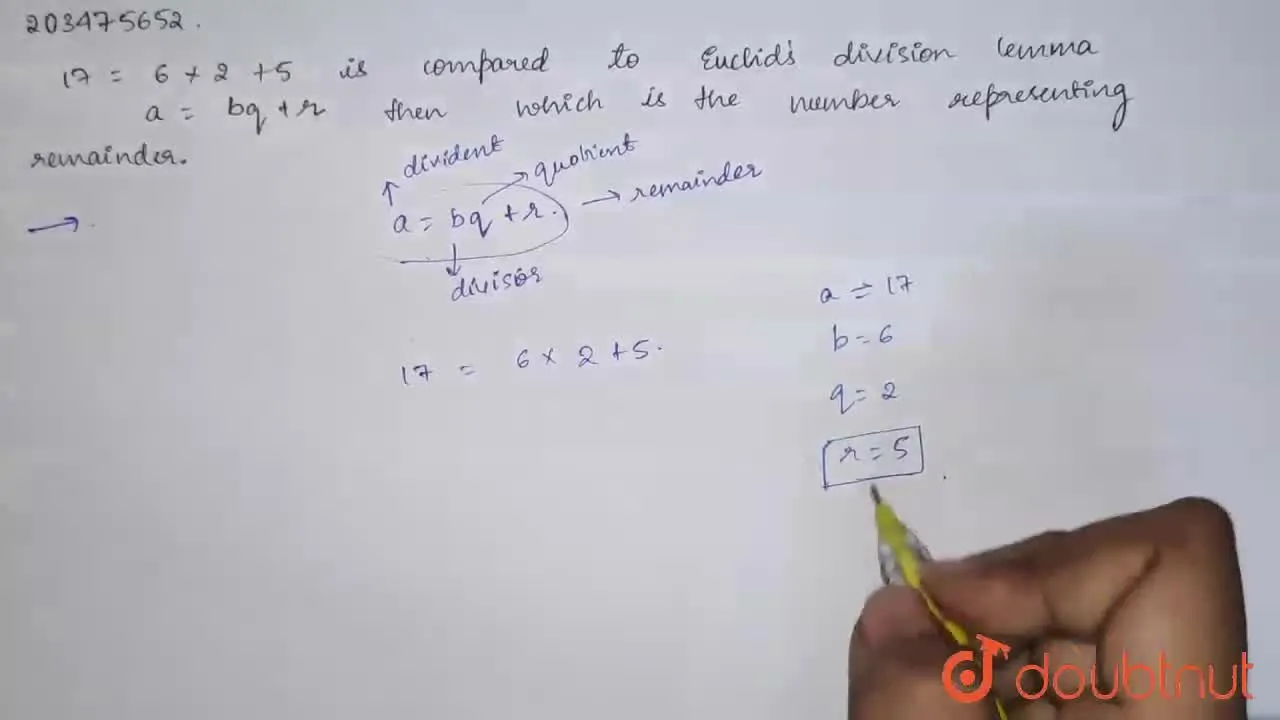 203475652.
17 = 6 × 2 + 5 is compared to Euclid's division lemma
a = bq + r then which is the number representing
remainder.
divident
quotient
a = bq + r. → remainder
divisor
a = 17
17 = 6 × 2 + 5.
b = 6
q = 2
r = 5
doubtnut